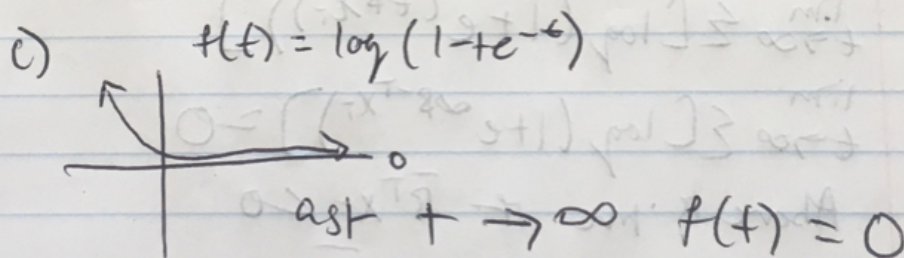 c) f(t) = log (1+e^-t)
0
as t → ∞ f(t) = 0